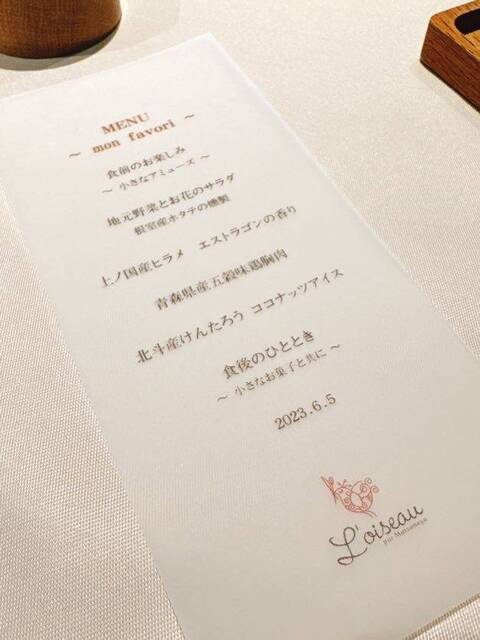 MENU
～ mon favori ～
食前のお楽しみ
～ 小さなアミューズ ～
地元野菜とお花のサラダ
根室産ホタテの燻製
上ノ国産ヒラメ　エストラゴンの香り
青森県産五穀味鶏胸肉
北斗産けんたろう ココナッツアイス
食後のひととき
～ 小さなお菓子と共に ～
2023.6.5
L'oiseau
par Matsunaga